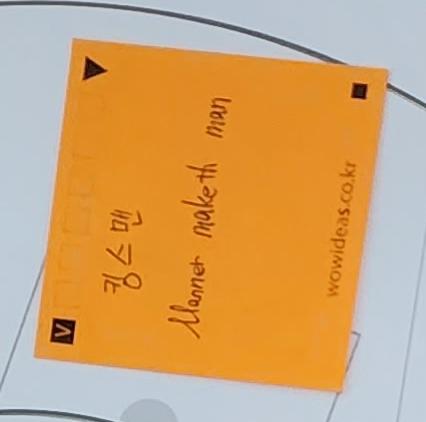 킹스맨
Manner maketh man
wowideas.co.kr
V